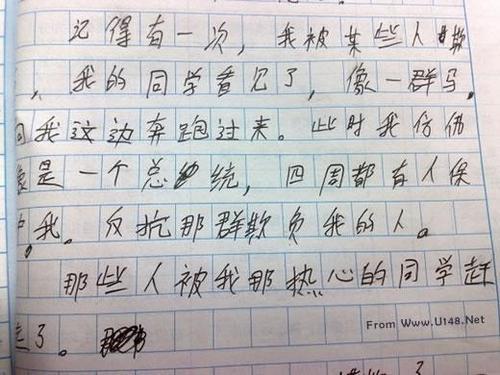 记得有一次，我被某些人欺
，我的同学看见了，像一群马，
向我这边奔跑过来。此时我仿佛
象是一个总统，四周都有人保
护我。反抗那群欺负我的人。
那些人被我那热心的同学赶
走了。
From Www.U148.Net